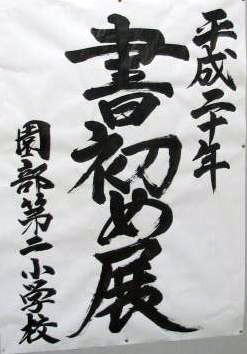 平成二十年
書初め展
園部第二小学校